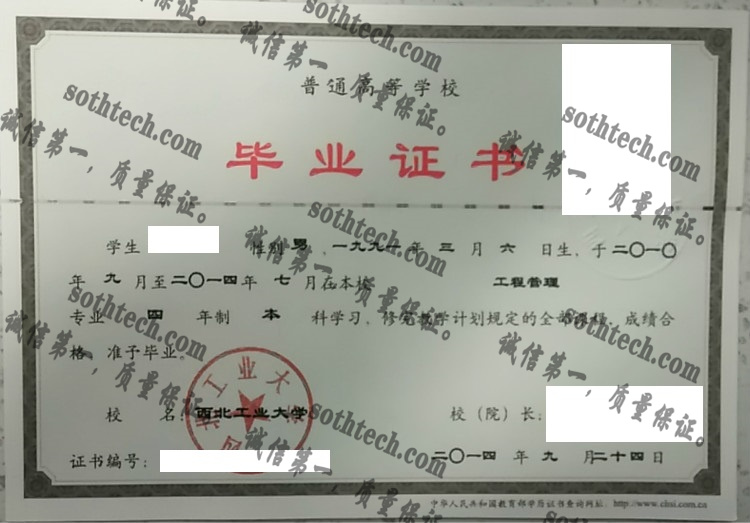 普通高等学校
毕业证书
学生 性别 男 , 一九九一 年 三 月 六 日生, 于 二〇一〇
年 九 月至 二〇一四 年 七 月在本校 工程管理
专业 四 年制 本 科学习, 修完教学计划规定的全部课程, 成绩合
格, 准予毕业。
校 名: 西北工业大学 校(院)长:
证书编号: 二〇一四 年 九 月 二十四 日
中华人民共和国教育部学历证书查询网址: http://www.chsi.com.cn
西北工业大学
sothtech.com
诚信第一,质量保证。
sothtech.com
诚信第一,质量保证。
sothtech.com
诚信第一,质量保证。
sothtech.com
诚信第一,质量保证。
sothtech.com
诚信第一,质量保证。
sothtech.com
诚信第一,质量保证。
sothtech.com
诚信第一,质量保证。
sothtech.com